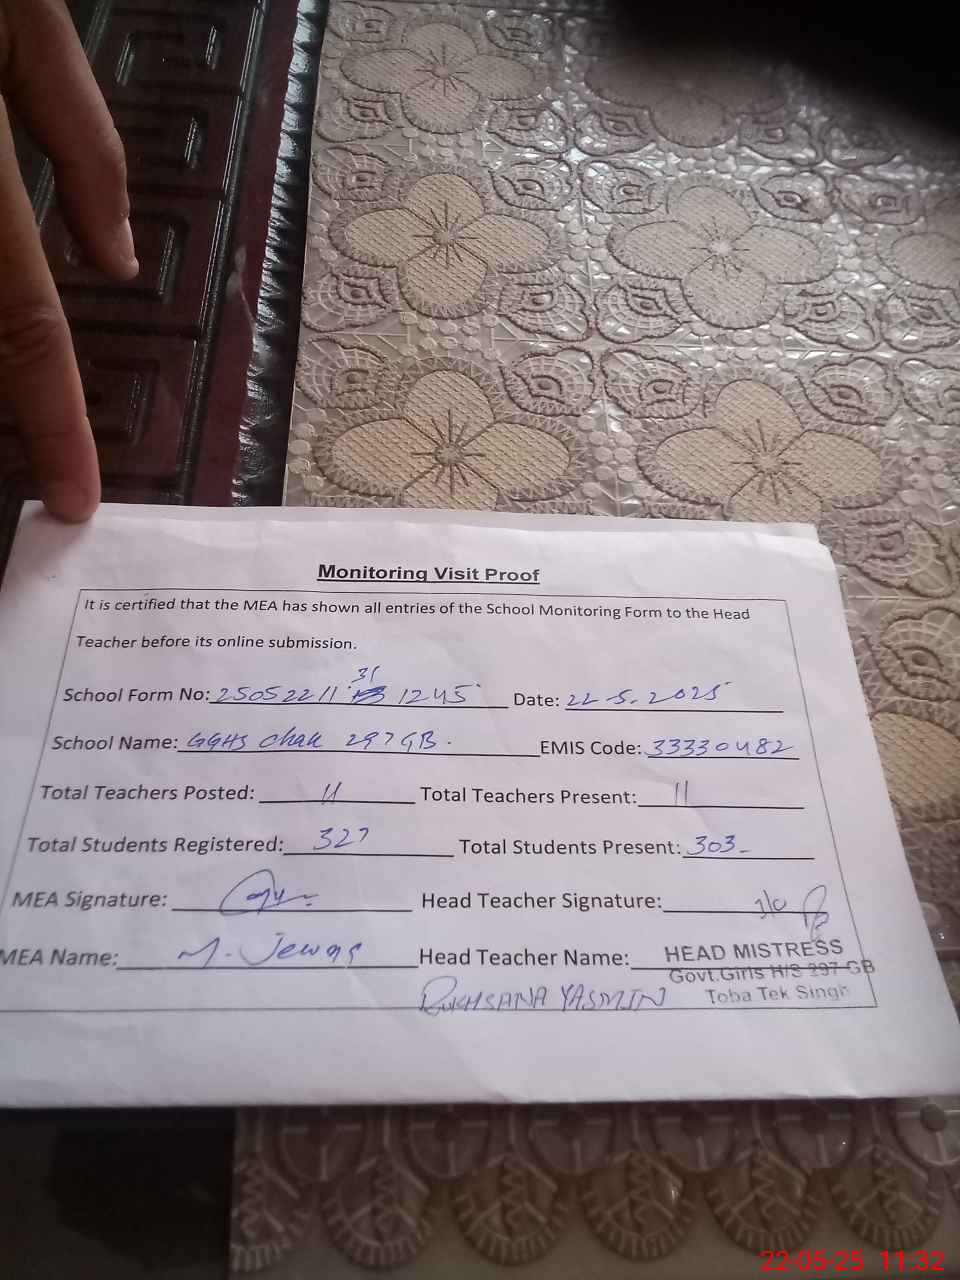 Monitoring Visit Proof
It is certified that the MEA has shown all entries of the School Monitoring Form to the Head
Teacher before its online submission.
31
School Form No: 25052211 1245 Date: 22-5-2025
School Name: GGHS Chak 297 GB. EMIS Code: 33330482
Total Teachers Posted: 11 Total Teachers Present: 11
Total Students Registered: 327 Total Students Present: 303-
MEA Signature: Head Teacher Signature: I/C
MEA Name: M. Head Teacher Name: HEAD MISTRESS
Govt.Girls H/S 297-GB
RUKHSANA YASMIN Toba Tek Singh
22-05-25 11:32